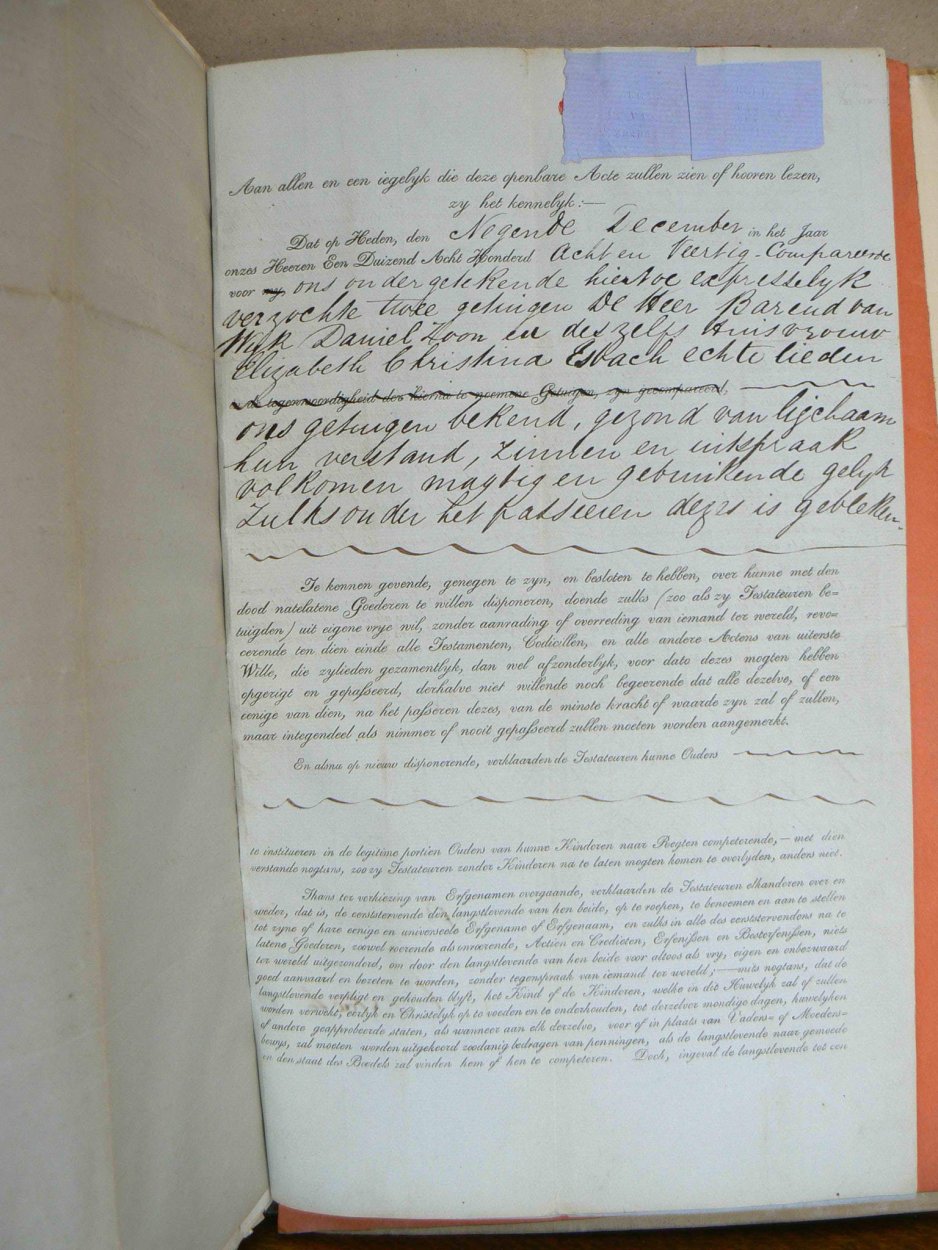 Aan allen en een iegelyk die deze openbare Acte zullen zien of hooren lezen,
zy het kennelyk:—
Dat op Heden, den Negende December in het Jaar
onzes Heeren Een Duizend Acht Honderd Acht en Veertig - Compareerde
voor my, ons ondergetekende hiertoe expresselyk
verzochte twee getuigen De Heer Barend van
Wyk Daniel Zoon en deszelfs Huisvrouw
Elizabeth Christina Esbach echte lieden
in tegenwoordigheid der hierna te noemene Getuigen, zyn gecompareerd,
ons getuigen bekend, gezond van ligchaam
hun verstand, zinnen en uitspraak
volkomen magtig en gebruikende gelyk
zulks onder het passeeren dezes is gebleken.
Te kennen gevende, genegen te zyn, en besloten te hebben, over hunne met den
dood natelatene Goederen te willen disponeren, doende zulks (zoo als zy Testateuren be-
tuigden) uit eigene vrye wil, zonder aanrading of overreding van iemand ter wereld, revo-
cerende ten dien einde alle Testamenten, Codicillen, en alle andere Actens van uiterste
Wille, die zylieden gezamentlyk, dan wel afzonderlyk, voor dato dezes mogten hebben
opgerigt en gepasseerd, derhalve niet willende noch begeerende dat alle dezelve, of een
eenige van dien, na het passeren dezes, van de minste kracht of waarde zyn zal of zullen,
maar integendeel als nimmer of nooit gepasseerd zullen moeten worden aangemerkt.
En alsnu op nieuw disponerende, verklaarden de Testateuren hunne Ouders
te institueren in de legitime portien Ouders van hunne Kinderen naar Regten competerende,— met dien
verstande nogtans, zoo zy Testateuren zonder Kinderen na te laten mogten komen te overlyden, anders niet.
Thans ter verkiezing van Erfgenamen overgaande, verklaarden de Testateuren elkanderen over en
weder, dat is, de eerststervende den langstlevende van hen beide, op te roepen, te benoemen en aan te stellen
tot zyne of hare eenige en universeele Erfgename of Erfgenaam, en zulks in alle des eerststervendens na te
latene Goederen, zoowel roerende als onroerende, Actien en Credieten, Erfenissen en Besterfenissen, niets
ter wereld uitgezonderd, om door den langstlevende van hen beide voor altoos als vry, eigen en onbezwaard
goed aanvaard en bezeten te worden, zonder tegenspraak van iemand ter wereld;—mits nogtans, dat de
langstlevende verpligt en gehouden blyft, het Kind of de Kinderen, welke in dit Huwelyk zal of zullen
worden verwekt, eerlyk en Christelyk op te voeden en te onderhouden, tot derzelver mondige dagen, huwelyken
of andere geapprobeerde staten, als wanneer aan elk derzelve, voor of in plaats van Vaders- of Moeders-
bewys, zal moeten worden uitgekeerd zoodanig bedragen van penningen, als de langstlevende naar gemoede
en den staat des Boedels zal vinden hem of hen te competeren. Doch, ingeval de langstlevende tot een